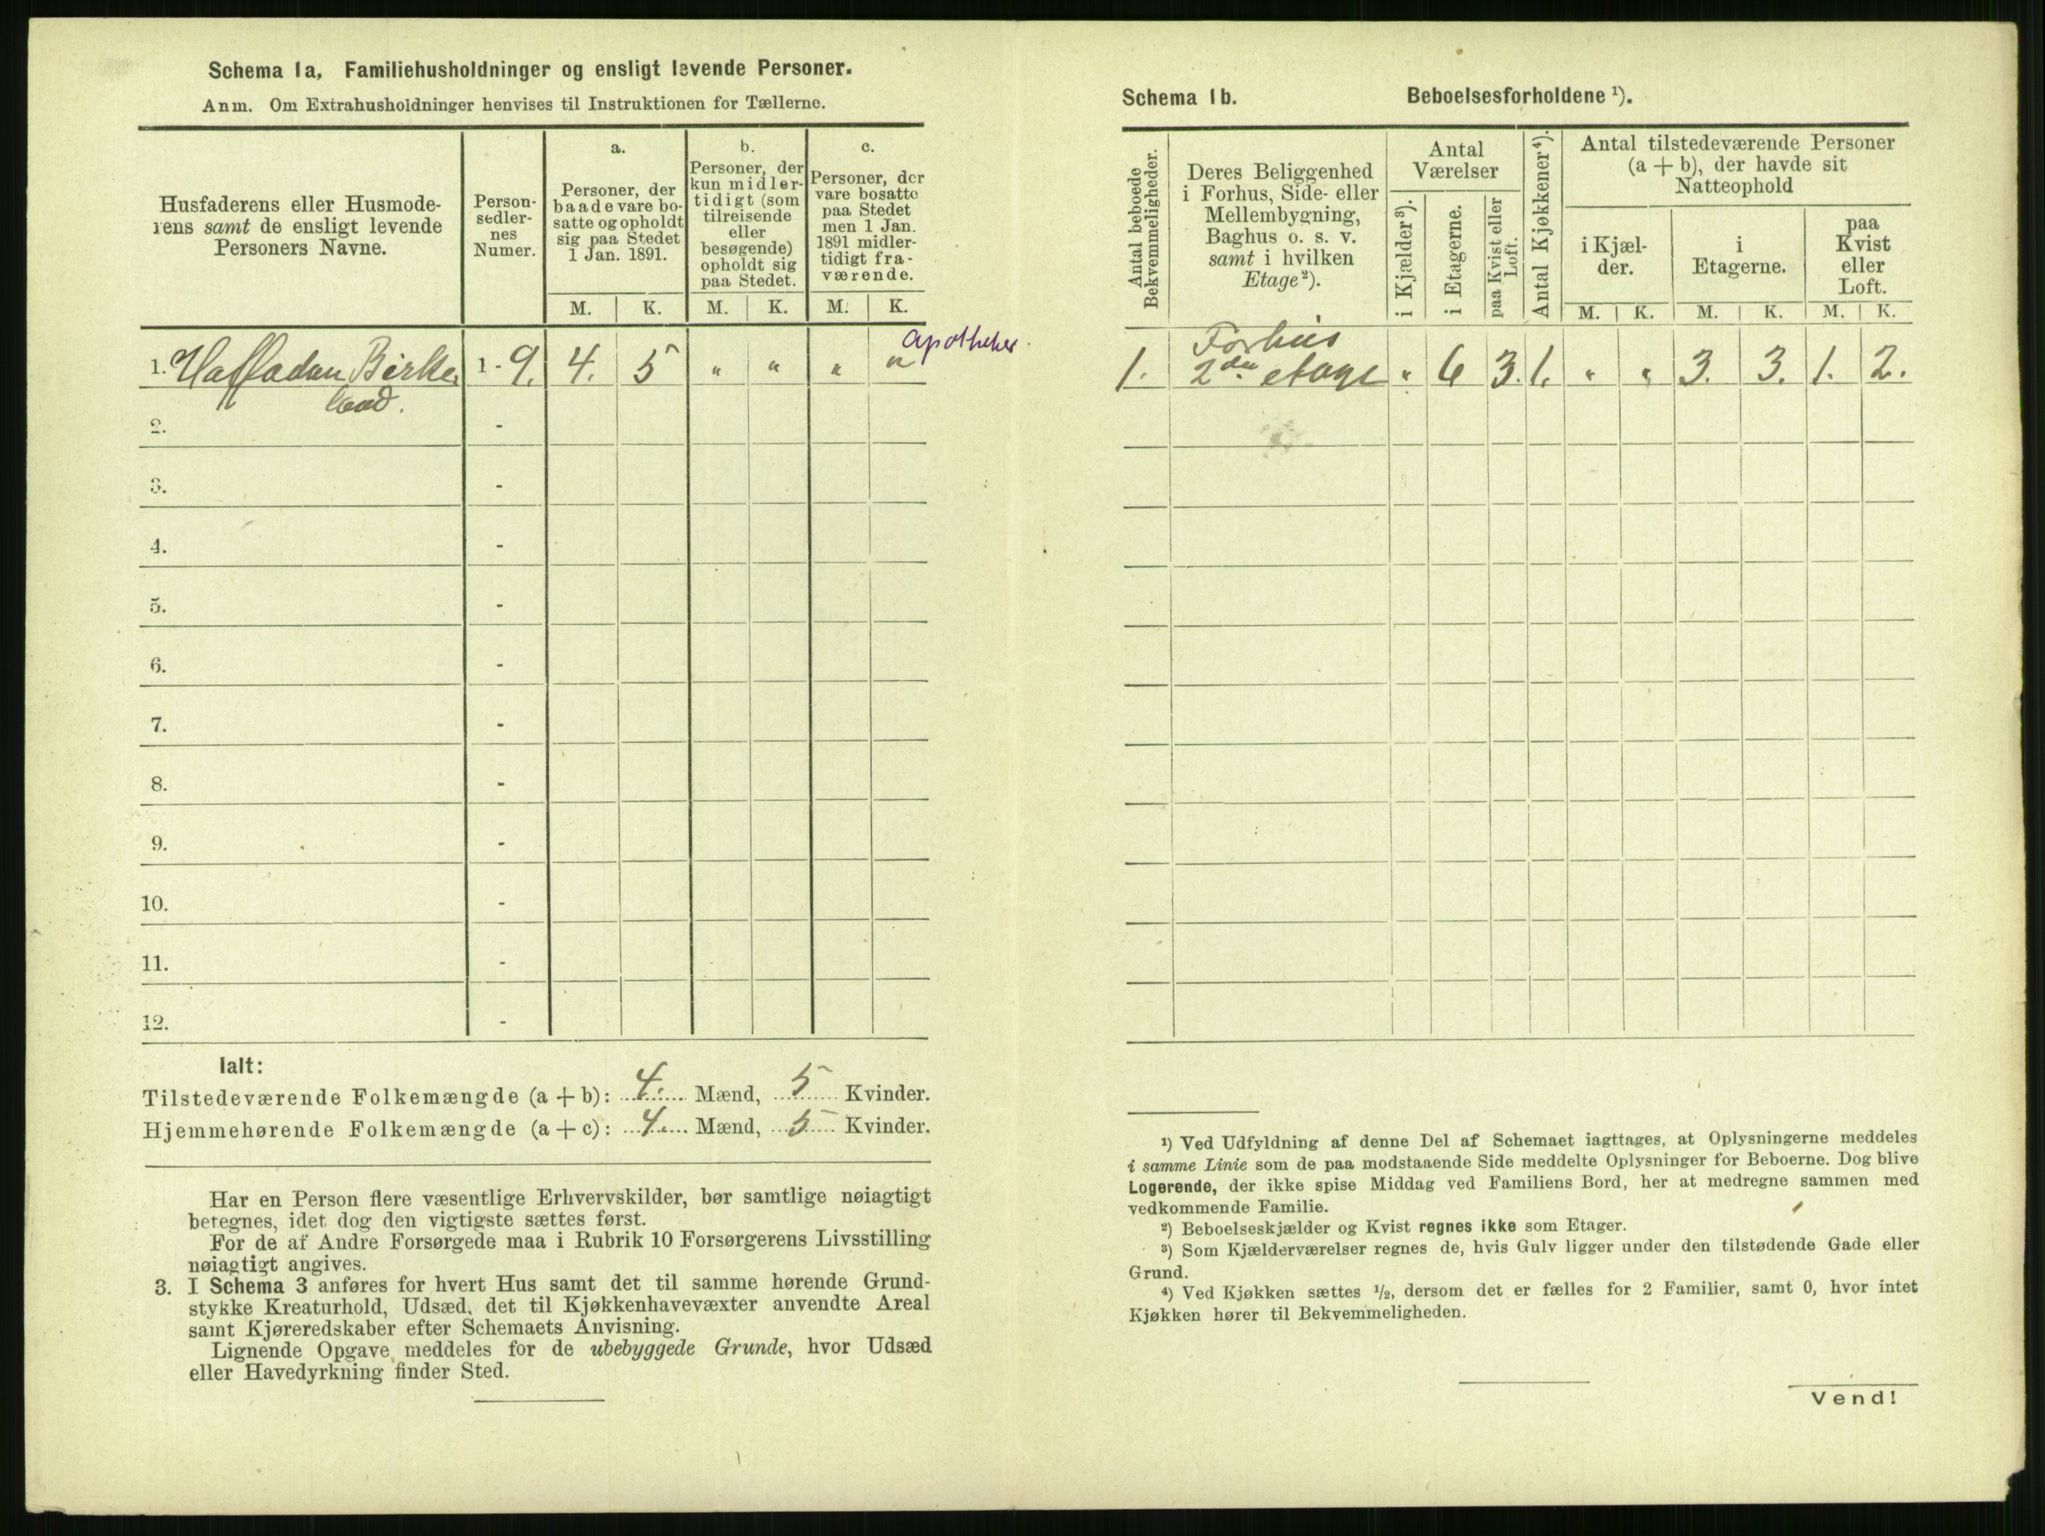 Schema 1a, Familiehusholdninger og ensligt levende Personer.
Anm. Om Extrahusholdninger henvises til Instruktionen for Tællerne.
Husfaderens eller Husmode-
rens samt de ensligt levende
Personers Navne.
Person-
sedler-
nes
Numer.
a.
Personer, der
baade vare bo-
satte og opholdt
sig paa Stedet
1 Jan. 1891.
b.
Personer, der
kun midler-
tidigt (som
tilreisende
eller
besøgende)
opholdt sig
paa Stedet.
c.
Personer, der
vare bosatte
paa Stedet
men 1 Jan.
1891 midler-
tidigt fra-
værende.
M. K. M. K. M. K.
Apotheker.
1. Halfadan Birke 1 - 9. 4. 5 " " " "
land.
2. -
3. -
4. -
5. -
6. -
7. -
8. -
9. -
10. -
11. -
12. -
Ialt:
Tilstedeværende Folkemængde (a + b): 4. Mænd, 5 Kvinder.
Hjemmehørende Folkemængde (a + c): 4. Mænd, 5 Kvinder.
Har en Person flere væsentlige Erhvervskilder, bør samtlige nøiagtigt
betegnes, idet dog den vigtigste sættes først.
For de af Andre Forsørgede maa i Rubrik 10 Forsørgerens Livsstilling
nøiagtigt angives.
3. I Schema 3 anføres for hvert Hus samt det til samme hørende Grund-
stykke Kreaturhold, Udsæd, det til Kjøkkenhavevæxter anvendte Areal
samt Kjøreredskaber efter Schemaets Anvisning.
Lignende Opgave meddeles for de ubebyggede Grunde, hvor Udsæd
eller Havedyrkning finder Sted.
Schema 1b. Beboelsesforholdene ¹).
Antal beboede
Bekvemmeligheder.
Deres Beliggenhed
i Forhus, Side- eller
Mellembygning,
Baghus o. s. v.
samt i hvilken
Etage²).
Antal
Værelser
i Kjælder³).
i Etagerne.
paa Kvist eller
Loft.
Antal Kjøkkener⁴).
Antal tilstedeværende Personer
(a + b), der havde sit
Natteophold
i Kjæl-
der.
i
Etagerne.
paa
Kvist
eller
Loft.
M. K. M. K. M. K.
Forhus
1. 2den etage " 6 3. 1. " " 3. 3. 1. 2.
¹) Ved Udfyldning af denne Del af Schemaet iagttages, at Oplysningerne meddeles
i samme Linie som de paa modstaaende Side meddelte Oplysninger for Beboerne. Dog blive
Logerende, der ikke spise Middag ved Familiens Bord, her at medregne sammen med
vedkommende Familie.
²) Beboelseskjælder og Kvist regnes ikke som Etager.
³) Som Kjælderværelser regnes de, hvis Gulv ligger under den tilstødende Gade eller
Grund.
⁴) Ved Kjøkken sættes ½, dersom det er fælles for 2 Familier, samt 0, hvor intet
Kjøkken hører til Bekvemmeligheden.
Vend!